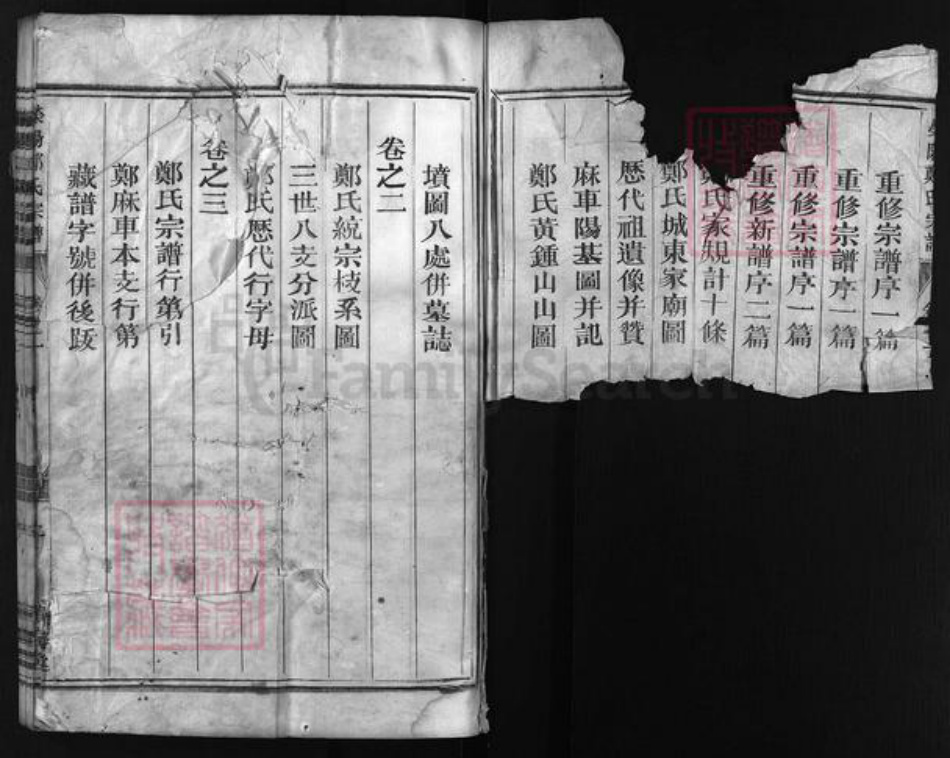 重修宗譜序一篇
重修宗譜序一篇
重修宗譜序一篇
重修新譜序二篇
氏家規計十條
鄭氏城東家廟圖
歷代祖遺像并贊
麻車陽基圖并記
鄭氏黃鍾山山圖
墳圖八處併墓誌
卷之二
鄭氏統宗枝系圖
三世八支分派圖
鄭氏歷代行字母
卷之三
鄭氏宗譜行第引
鄭麻車本支行第
藏譜字號併後跋
氏宗譜
FamilySearch